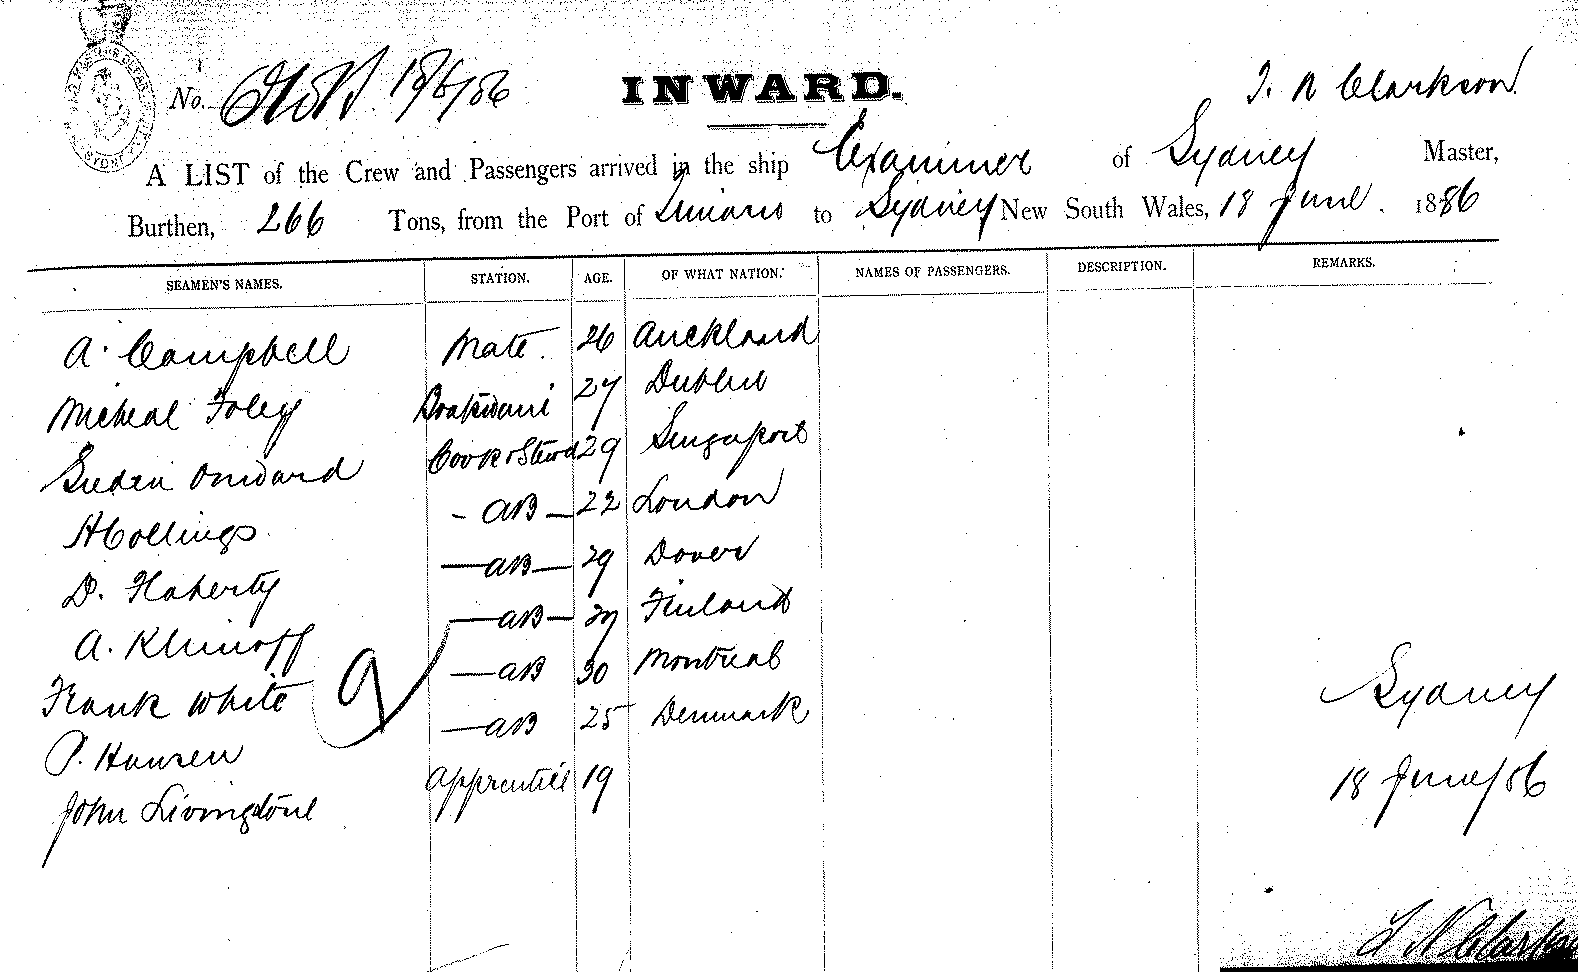 No. 18/6/86
INWARD.
T. N Clarkson
A LIST of the Crew and Passengers arrived in the ship Examiner of Sydney Master,
Burthen, 266 Tons, from the Port of to Sydney New South Wales, 18 June. 1886
SEAMEN'S NAMES. STATION. AGE. OF WHAT NATION. NAMES OF PASSENGERS. DESCRIPTION. REMARKS.
A. Campbell Mate. 26 Auckland
Micheal Foley 27 Dublin
Onward Cook & Stewd 29 Singapore
H Collings - AB - 22 London
D. Flaherty - AB - 29 Dover
A. Klinoff - AB - 27 Finland
Frank White - AB 30 Montreal
P. Hansen - AB 25 Denmark
John Livingstone Apprentice 19
9
Sydney
18 June/86
T N Clarkson